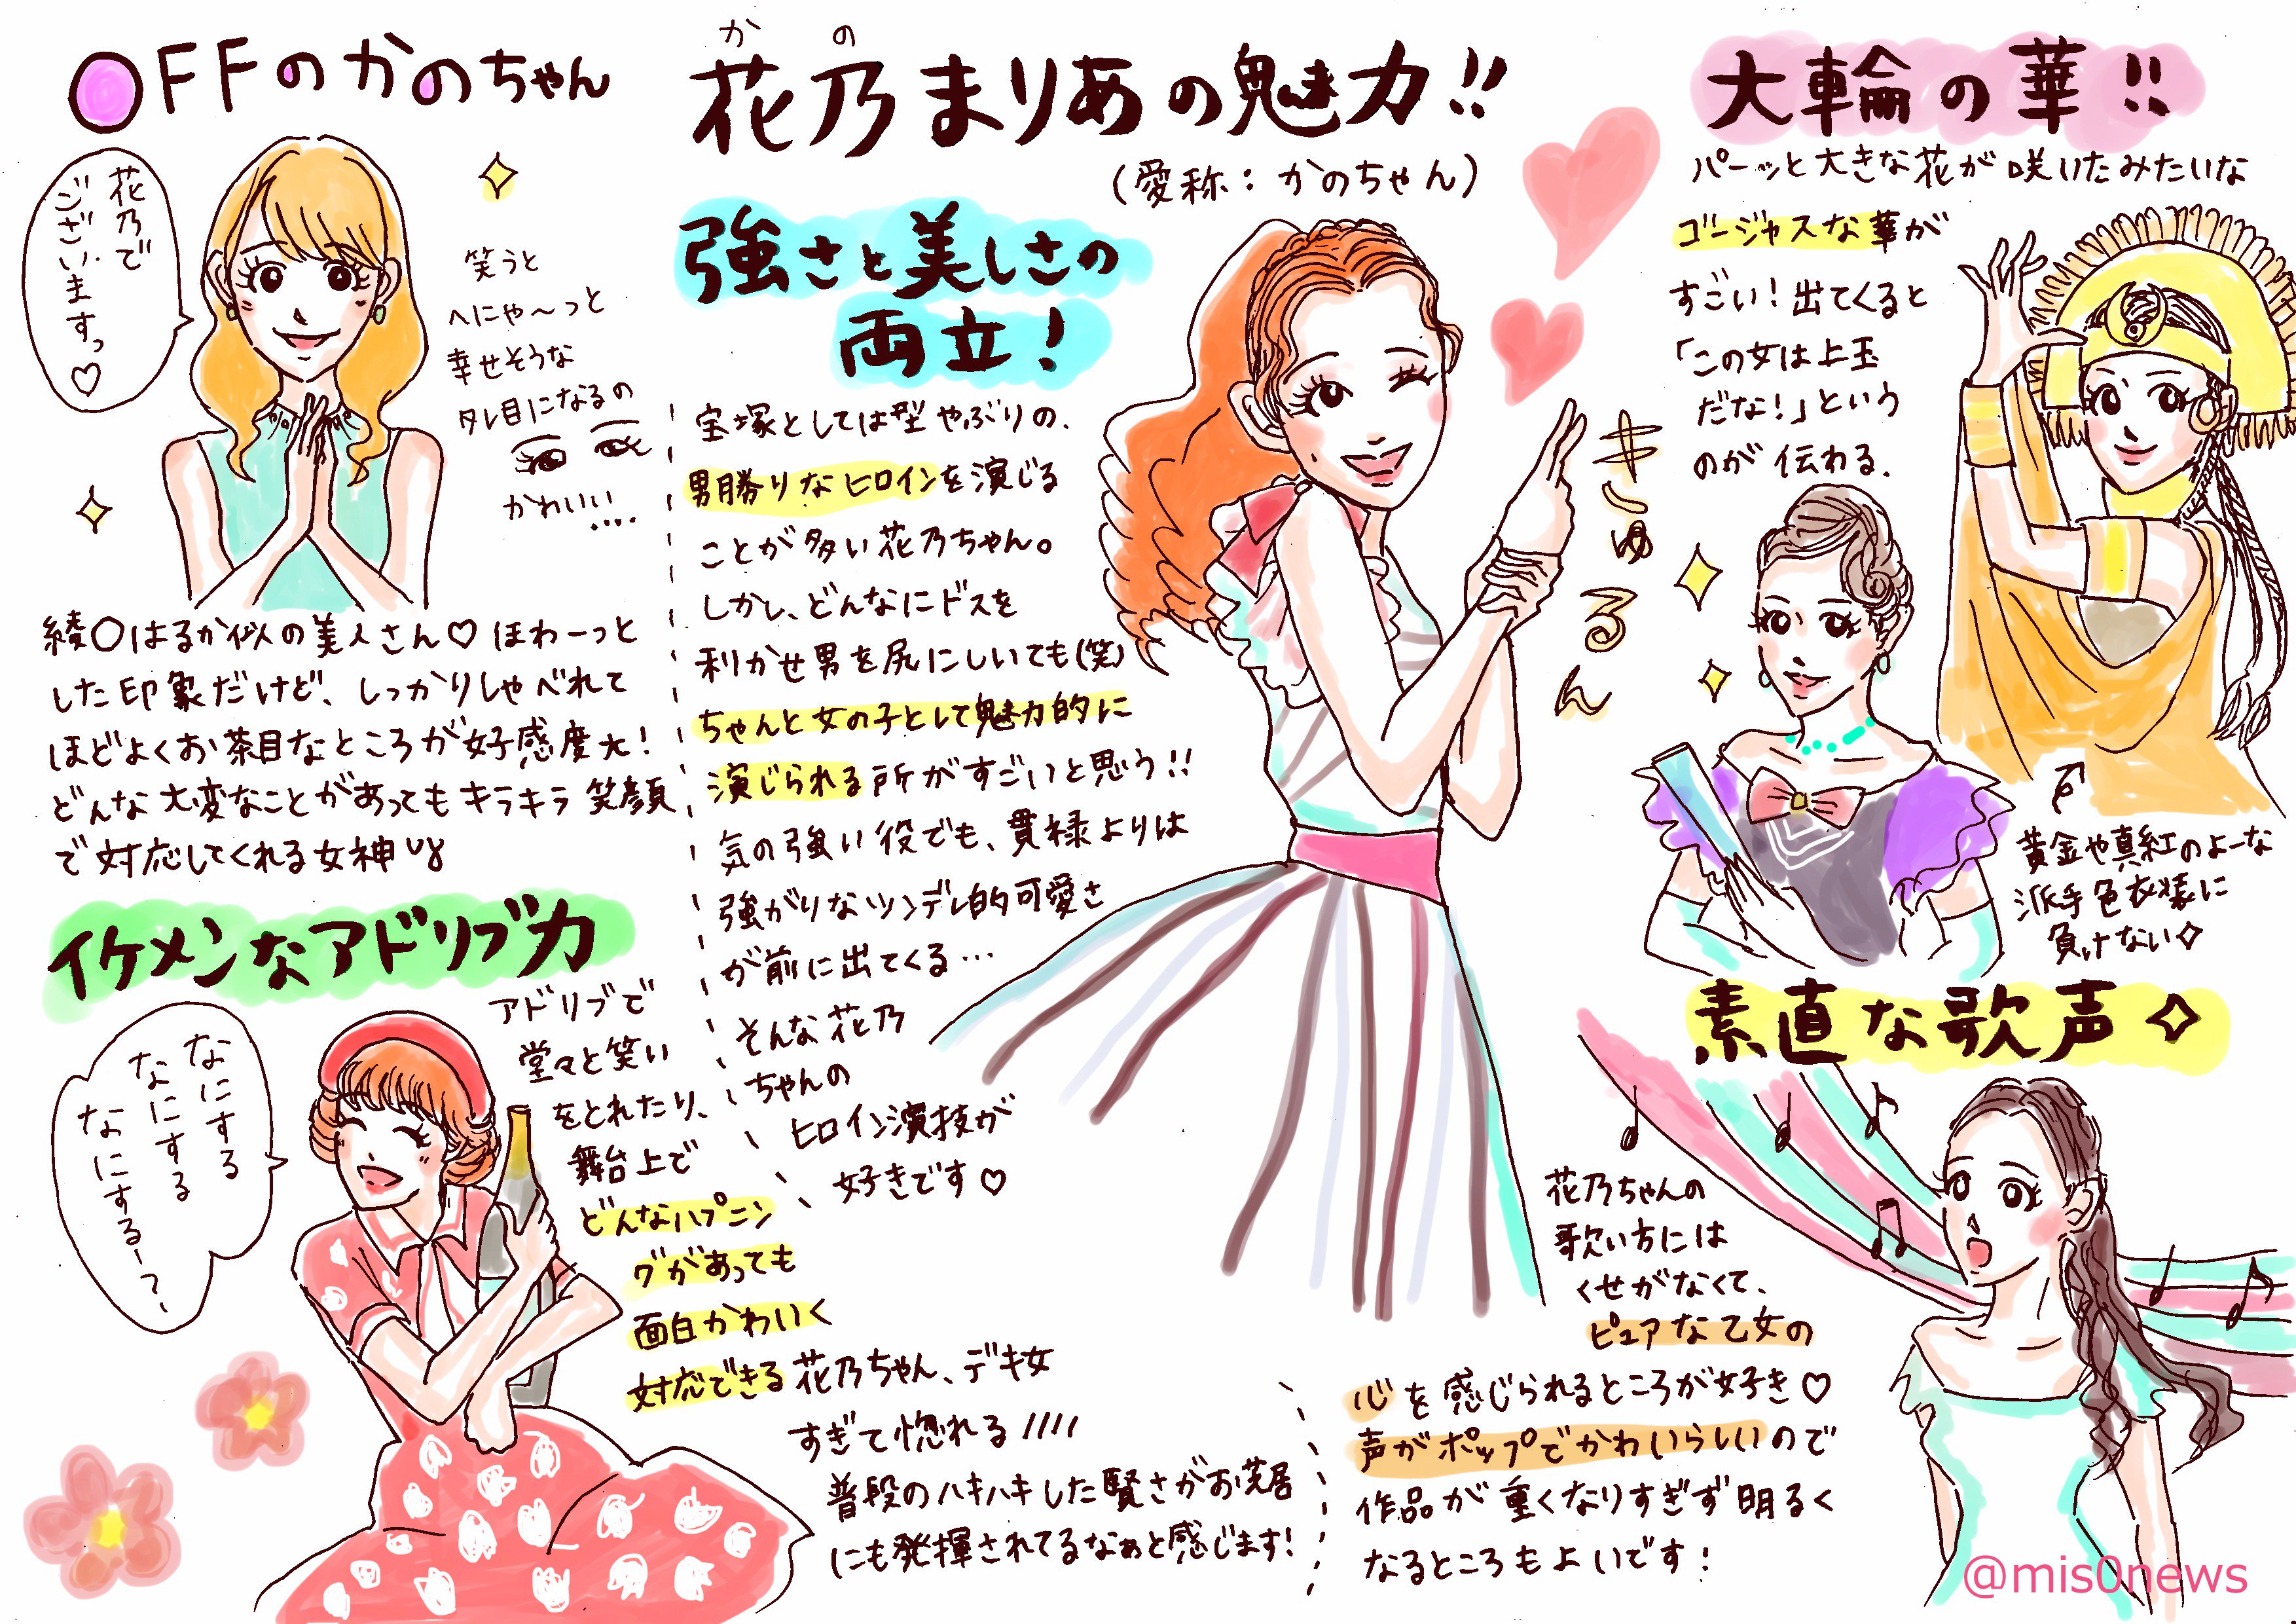 かの
花乃まりあの魅力!!
(愛称:かのちゃん)
OFFのかのちゃん
花乃で
ございますっ♡
笑うと
へにゃ〜っと
幸せそうな
タレ目になるの
かわいい....
綾〇はるか似の美人さん♡ほわーっと
した印象だけど、しっかりしゃべれて
ほどよくお茶目なところが好感度大!
どんな大変なことがあってもキラキラ笑顔
で対応してくれる女神
イケメンなアドリブ力
なにする
なにする
なにするー?
アドリブで
堂々と笑い
をとれたり、
舞台上で
どんなハプニン
グがあっても
面白かわいく
対応できる花乃ちゃん、デキ女
すぎて惚れる////
普段のハキハキした賢さがお芝居
にも発揮されてるなぁと感じます!
強さと美しさの
両立!
宝塚としては型やぶりの、
男勝りなヒロインを演じる
ことが多い花乃ちゃん。
しかし、どんなにドスを
利かせ男を尻にしいても(笑)
ちゃんと女の子として魅力的に
演じられる所がすごいと思う!!
気の強い役でも、貫禄よりは
強がりなツンデレ的可愛さ
が前に出てくる…
そんな花乃
ちゃんの
ヒロイン演技が
好きです♡
きゅるん
大輪の華!!
パーッと大きな花が咲いたみたいな
ゴージャスな華が
すごい!出てくると
「この女は上玉
だな!」という
のが伝わる.
黄金や真紅のよーな
派手色衣装に
負けない✧
素直な歌声✧
花乃ちゃんの
歌い方には
くせがなくて、
ピュアな乙女の
心を感じられるところが好き♡
声がポップでかわいらしいので
作品が重くなりすぎず明るく
なるところもよいです!
@mis0news